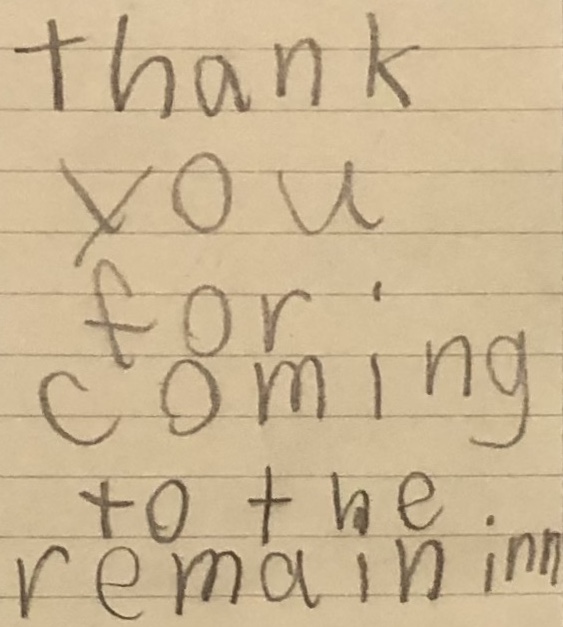 thank
you
for
coming
to the
remain inn